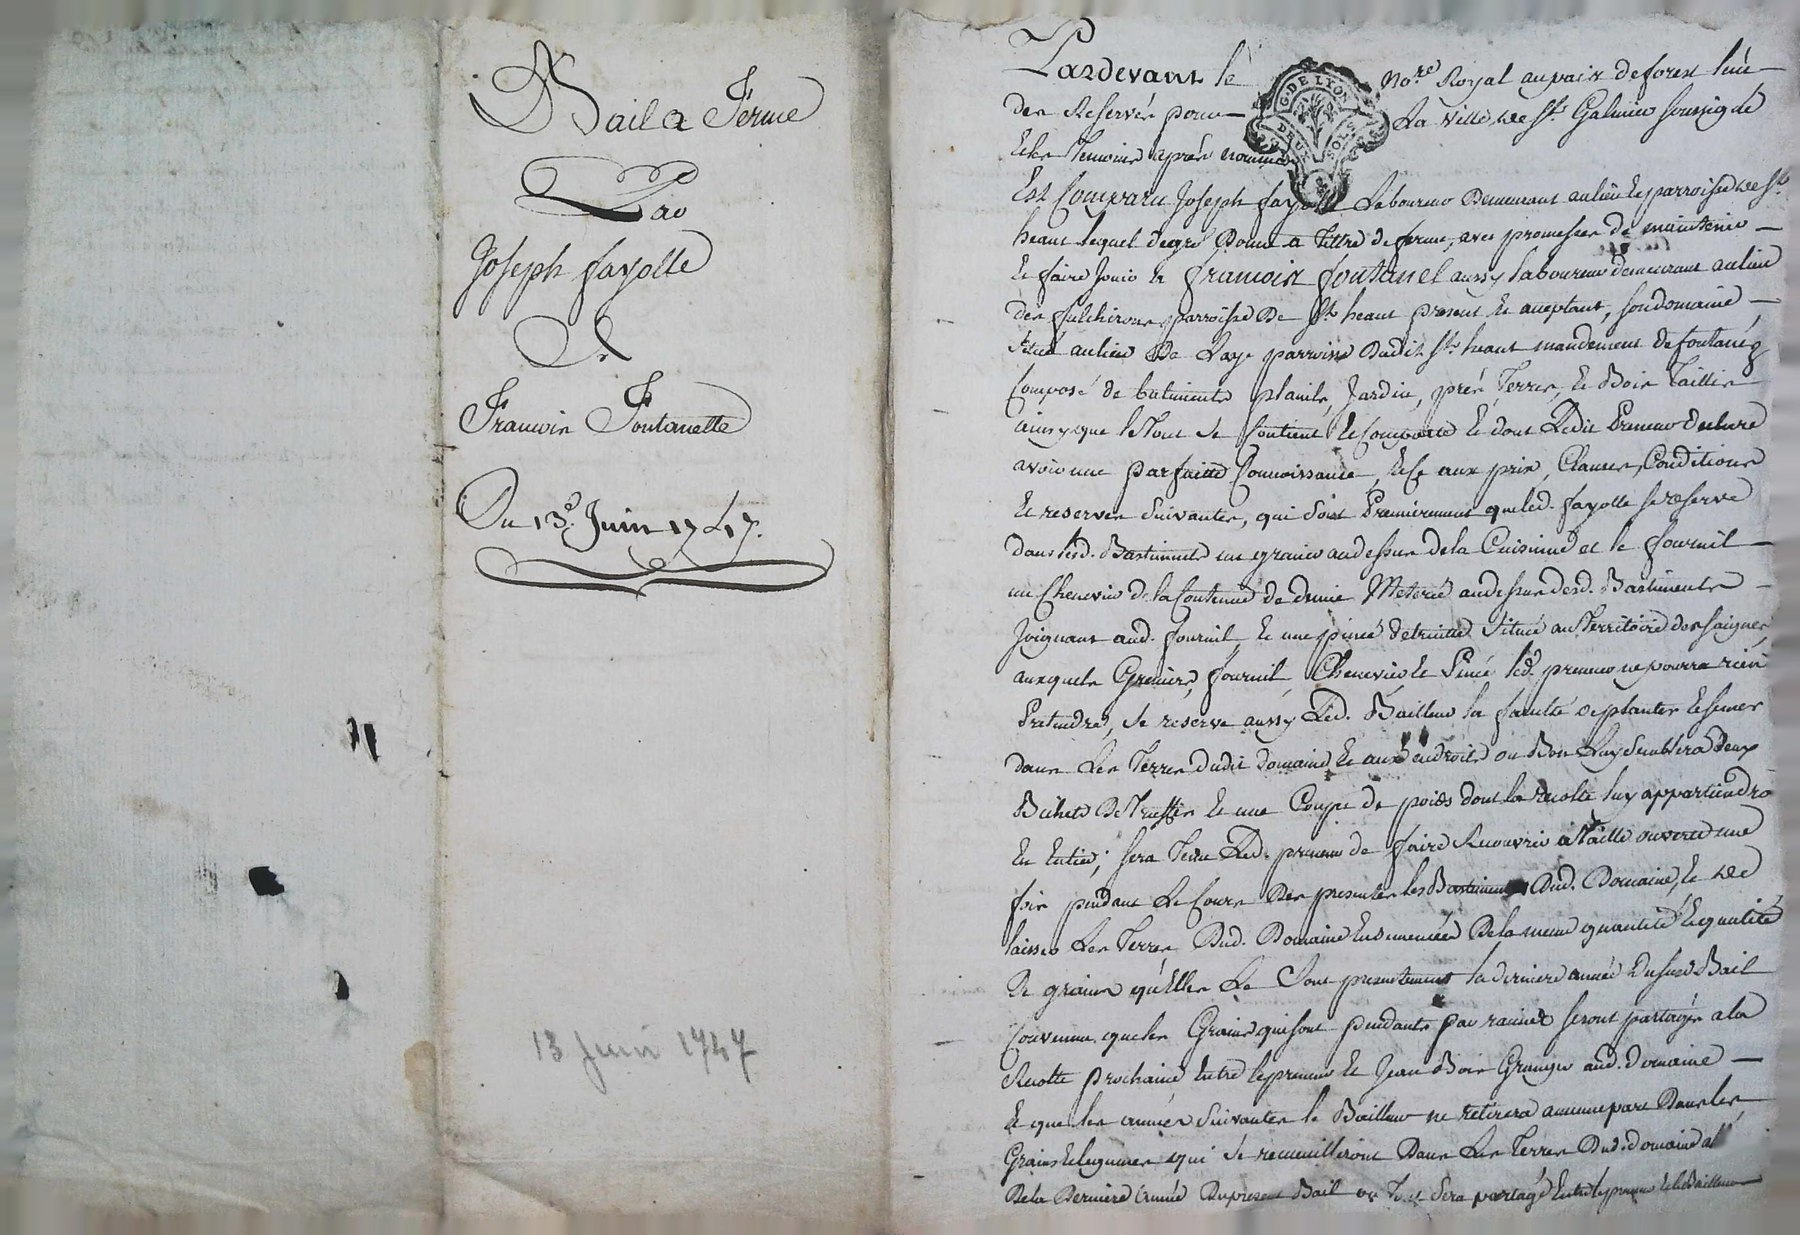 Bail a Ferme
Par
Joseph fayolle
A
Francois Fontanelle
Du 13e. Juin 1747.
13 juin 1747
G. DE LYON
DEUX SOLS
Pardevant le No.re Royal au païx de forex
des Reservés pour La ville de St. Galmier soussigné
et les Temoins après nommés
Est Comparu Joseph fayolle Laboureur Demeurant au lieu et parroisse de St.
heant lequel degré Donne a Tittre de ferme, avec promesse de maintenir
et faire Jouir a francoix fontanel aussy laboureur demeurant au lieu
des fulchirons parroisse De St. heant present et acceptant, son domaine,
situé au lieu De Laye parroisse Dudit St. heant mandement de fontanés
Composé de batiments plaints, Jardin, prés, Terres, et Bois Taillis
ainsy que le Tout se Contient et Comporte et dont Ledit Preneur declare
avoir une parfaitte Connoissance, et ce aux prix, Clauses, Conditions
et reserves suivantes, qui sont Premierement que led. fayolle se reserve
dans lesd. Bastiments un grenier au dessus de la Cuisine et le fournil
un Chenevier de la Contenue de demie Meterée au dessus desd. Bastiments
Joignant aud. fournil, et une piece situé au Territoire des saignes,
auxquels Grenier, fournil, Chenevier, et led. preneur ne pourra rien
Pretendre, se reserve aussy Led. Bailleur la faculté de planter et semer
dans Les Terres dudit domaine et aux endroits ou Bon Luy semblera Deux
Bichets De Truffes et une Coupe de poids dont la recolte luy appartiendra
En Entier; sera Tenu Led. preneur de faire Recouvrir a Taille ouverte une
fois pendant Le Cours Des presentes les Bastiments Dud. Domaine, et de
laisser Les Terres Dud. Domaine Ensemencées De la meme quantité et qualité
De grains qu'Elles Le sont presentement la derniere année Dususd Bail
Convenu que les Grains qui sont pendants par racines seront partagés a la
Recolte prochaine Entre le preneur et Jean Bois Granger aud. Domaine
Et que les années suivantes le Bailleur ne retirera aucune part Dans les
Grains et legumes qui se recueilliront Dans Les Terres Dud. domaine
De la Derniere année Du present Bail ou Tout sera partagé Entre le preneur et le Bailleur